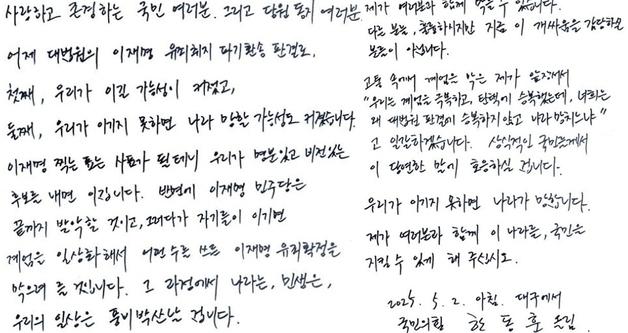 사랑하고 존경하는 국민 여러분. 그리고 당원 동지 여러분
어제 대법원의 이재명 유죄취지 파기환송 판결로,
첫째, 우리가 이길 가능성이 커졌고,
둘째, 우리가 이기지 못하면 나라 망할 가능성도 커졌습니다.
이재명 찍는 표는 사표가 될테니 우리가 명분있고 비전있는
후보를 내면 이깁니다. 반면에 이재명 민주당은
끝까지 발악할 것이고, 그러다가 자기들이 이기면
계엄을 일상화해서 어떤 수를 쓰든 이재명 유죄확정을
막으려 들 것입니다. 그 과정에서 나라는, 민생은,
우리의 일상은 풍비박산날 겁니다.
제가 여러분과 함께 막을 수 있습니다.
다른 분들, 훌륭하시지만 지금 이 개싸움을 감당하실
분들이 아닙니다.
고통 속에서 계엄을 막은 제가 앞장서서
"우리는 계엄을 극복하고, 탄핵에 승복했는데, 너희는
왜 대법원 판결에 승복하지 않고 나라 망치느냐"
고 일갈하겠습니다. 상식적인 국민들께서
이 당연한 말에 호응하실 겁니다.
우리가 이기지 못하면 나라가 망합니다.
제가 여러분과 함께 이 나라를, 국민을
지킬 수 있게 해 주십시오.
2025. 5. 2. 아침. 대구에서
국민의힘 한 동 훈 올림